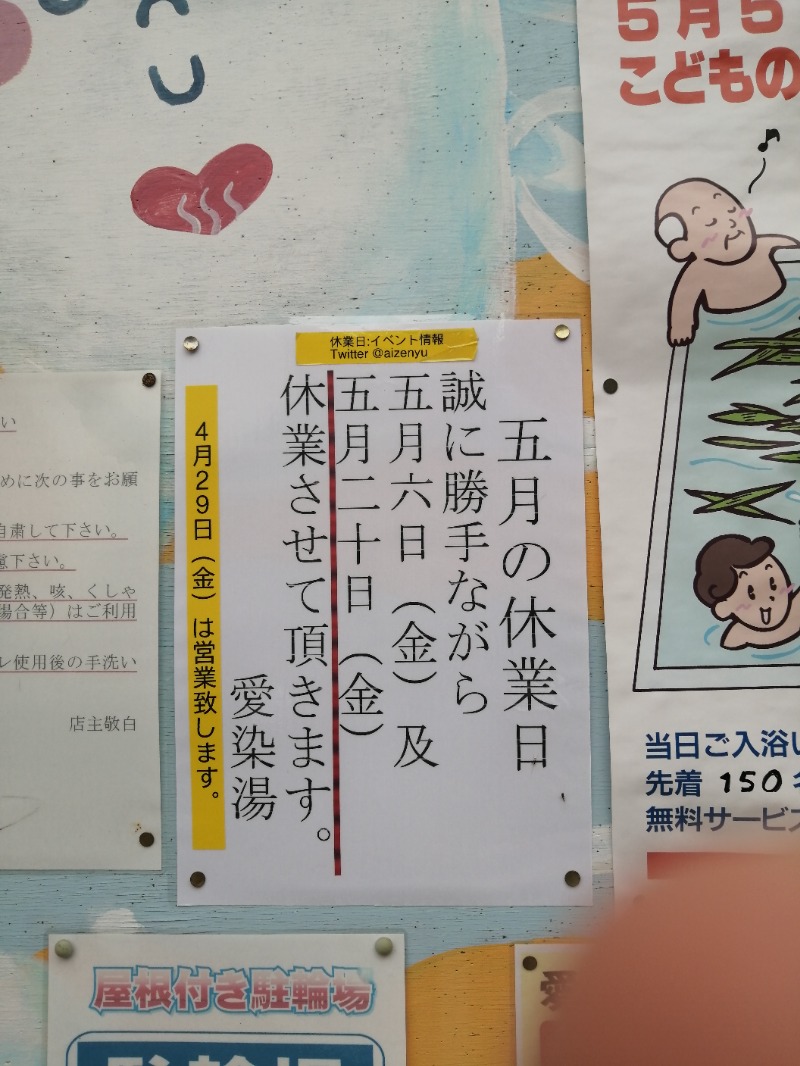 休業日:イベント情報
Twitter @aizenyu
五月の休業日
誠に勝手ながら
五月六日（金）及
五月二十日（金）
休業させて頂きます。
愛染湯
4月29日（金）は営業致します。
5月5
こどもの
当日ご入浴い
先着 150名
無料サービス
い
めに次の事をお願
自粛して下さい。
慮下さい。
発熱、咳、くしゃ
場合等）はご利用
レ使用後の手洗い
店主敬白
屋根付き駐輪場
駐輪場
愛